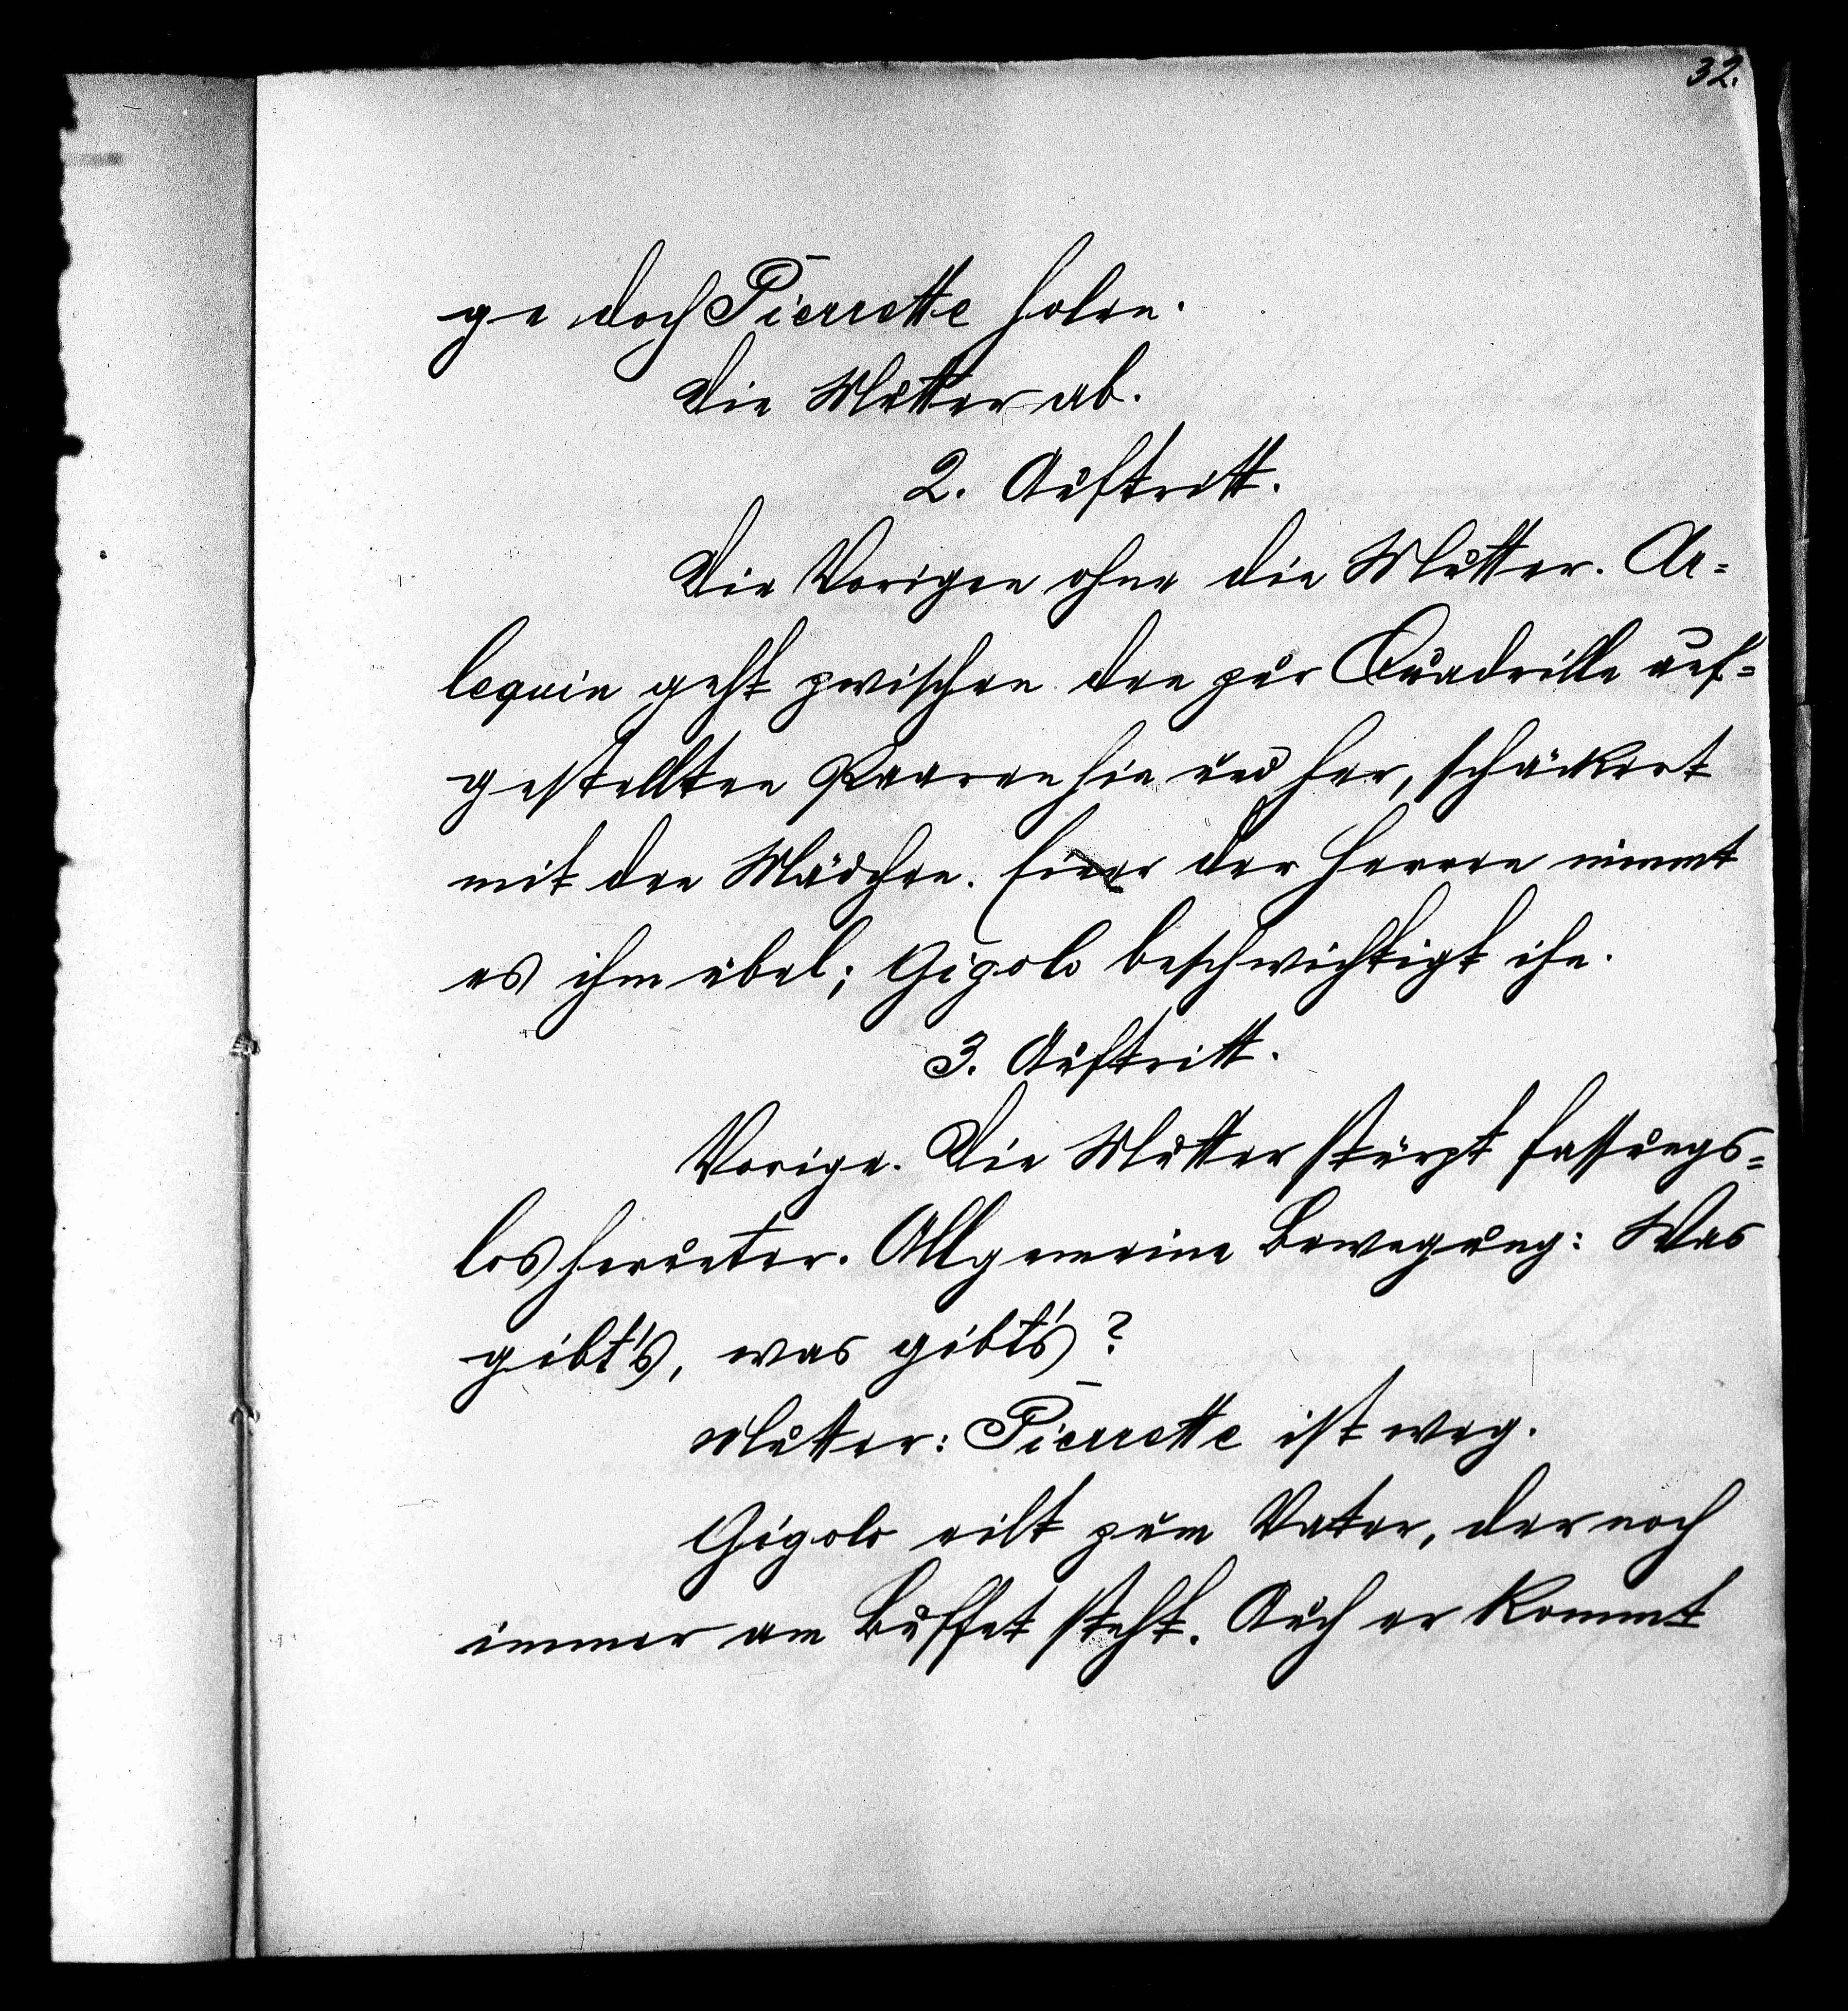 32.
ge doch Pierrette holen.
Die Mutter ab.
2. Auftritt.
Die Vorigen ohne die Mutter. Ar=
lequin geht zwischen den zur Quadrille auf=
gestellten Paaren hin und her, schäckert
mit den Mädchen. Einer der Herren nimmt
es ihm übel; Gigolo beschwichtigt ihn.
3. Auftritt.
Vorige. Die Mutter stürzt fassungs=
los herunter. Allgemeine Bewegung: Was
gibt's, was gibt's?
Mutter: Pierrette ist weg.
Gigolo eilt zum Vater, der noch
immer am Buffet steht. Auch er kommt